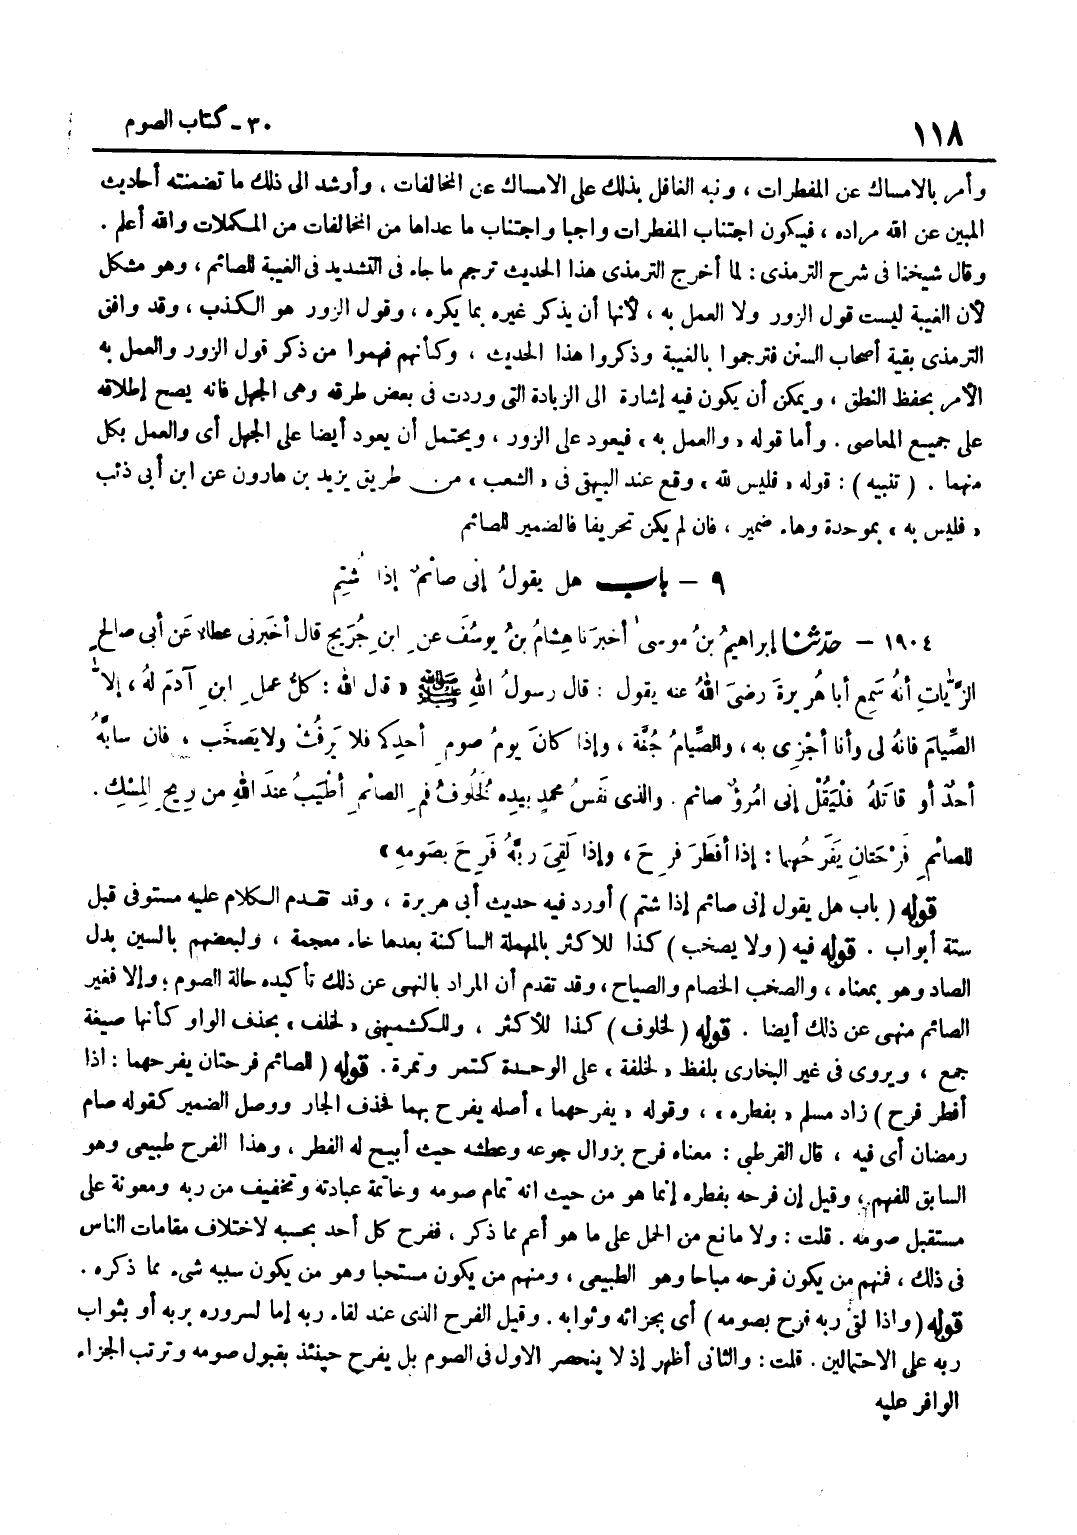 ١١٨
٣٠ - كتاب الصوم
وأمر بالامساك عن المفطرات ، ونبه الغافل بذلك على الامساك عن المخالفات ، وأرشد الى ذلك ما تضمنته أحاديث
المبين عن الله مراده ، فيكون اجتناب المفطرات واجبا واجتناب ما عداها من المخالفات من المكملات والله أعلم .
وقال شيخنا فى شرح الترمذى : لما أخرج الترمذى هذا الحديث ترجم ما جاء فى التشديد فى الغيبة للصائم ، وهو مشكل
لأن الغيبة ليست قول الزور ولا العمل به ، لأنها أن يذكر غيره بما يكره ، وقول الزور هو الكذب ، وقد وافق
الترمذى بقية أصحاب السنن فترجموا بالغيبة وذكروا هذا الحديث ، وكأنهم فهموا من ذكر قول الزور والعمل به
الأمر بحفظ النطق ، ويمكن أن يكون فيه إشارة الى الزيادة التى وردت فى بعض طرقه وهى الجهل فانه يصح إطلاقه
على جميع المعاصى . وأما قوله « والعمل به » فيعود على الزور ، ويحتمل أن يعود أيضا على الجهل أى والعمل بكل
منهما . ( تنبيه ) : قوله « فليس لله » وقع عند البيهقى فى « الشعب » من طريق يزيد بن هارون عن ابن أبى ذئب
« فليس به » بموحدة وهاء ضمير ، فان لم يكن تحريفا فالضمير للصائم
٩ - باب هل يقولُ إنى صائمٌ إذا شُتِم
١٩٠٤ - حدّثنا إبراهيمُ بنُ موسىٰ أخبرَنا هِشامُ بنُ يوسُفَ عنِ ابنِ جُرَيجٍ قال أخبَرنى عطاء عَن أبى صالحٍ
الزَّيّاتِ أنهُ سَمِع أبا هُريرةَ رضىَ اللهُ عنه يقول : قال رسولُ اللهِ ﷺ « قال اللهُ : كلُّ عملِ ابنِ آدمَ لهُ ، إلاّ
الصِّيامَ فانهُ لى وأنا أجْزِى به ، والصِّيامُ جُنَّة ، وإذا كانَ يومُ صومِ أحدِكم فلا يَرفُثْ ولا يَصخَب ، فان سابَّهُ
أحدٌ أو قاتلهُ فلْيَقُلْ إنى امرُؤٌ صائم . والذى نَفسُ محمدٍ بيدِه لَخُلوفُ فمِ الصائمِ أطْيَبُ عندَ اللهِ من رِيحِ المِسْكِ .
للصائمِ فَرْحَتانِ يَفرَحُهما : إذا أفطَرَ فرِحَ ، وإذا لَقِىَ ربَّهُ فَرِحَ بصَومِهِ »
قوله ( باب هل يقول إنى صائم إذا شتم ) أورد فيه حديث أبى هريرة ، وقد تقدم الكلام عليه مستوفى قبل
ستة أبواب . قوله فيه ( ولا يصخب ) كذا للأكثر بالمهملة الساكنة بعدها خاء معجمة ، ولبعضهم بالسين بدل
الصاد وهو بمعناه ، والصخب الخصام والصياح ، وقد تقدم أن المراد بالنهى عن ذلك تأكيده حالة الصوم ؛ وإلا فغير
الصائم منهى عن ذلك أيضا . قوله ( لخلوف ) كذا للأكثر ، وللكشميهنى « لخلف » بحذف الواو كأنها صيغة
جمع ، ويروى فى غير البخارى بلفظ « لخلفة » على الوحدة كتمر وتمرة . قوله ( للصائم فرحتان يفرحهما : اذا
أفطر فرح ) زاد مسلم « بفطره » ، وقوله « يفرحهما » أصله يفرح بهما فحذف الجار ووصل الضمير كقوله صام
رمضان أى فيه ، قال القرطبى : معناه فرح بزوال جوعه وعطشه حيث أبيح له الفطر ، وهذا الفرح طبيعى وهو
السابق للفهم ، وقيل إن فرحه بفطره إنما هو من حيث انه تمام صومه وخاتمة عبادته وتخفيف من ربه ومعونة على
مستقبل صومه . قلت : ولا مانع من الحمل على ما هو أعم مما ذكر ، ففرح كل أحد بحسبه لاختلاف مقامات الناس
فى ذلك ، فمنهم من يكون فرحه مباحا وهو الطبيعى ، ومنهم من يكون مستحبا وهو من يكون سببه شىء مما ذكره .
قوله ( واذا لقى ربه فرح بصومه ) أى بجزائه وثوابه . وقيل الفرح الذى عند لقاء ربه إما لسروره بربه أو بثواب
ربه على الاحتمالين . قلت : والثانى أظهر إذ لا ينحصر الاول فى الصوم بل يفرح حينئذ بقبول صومه وترتب الجزاء
الوافر عليه